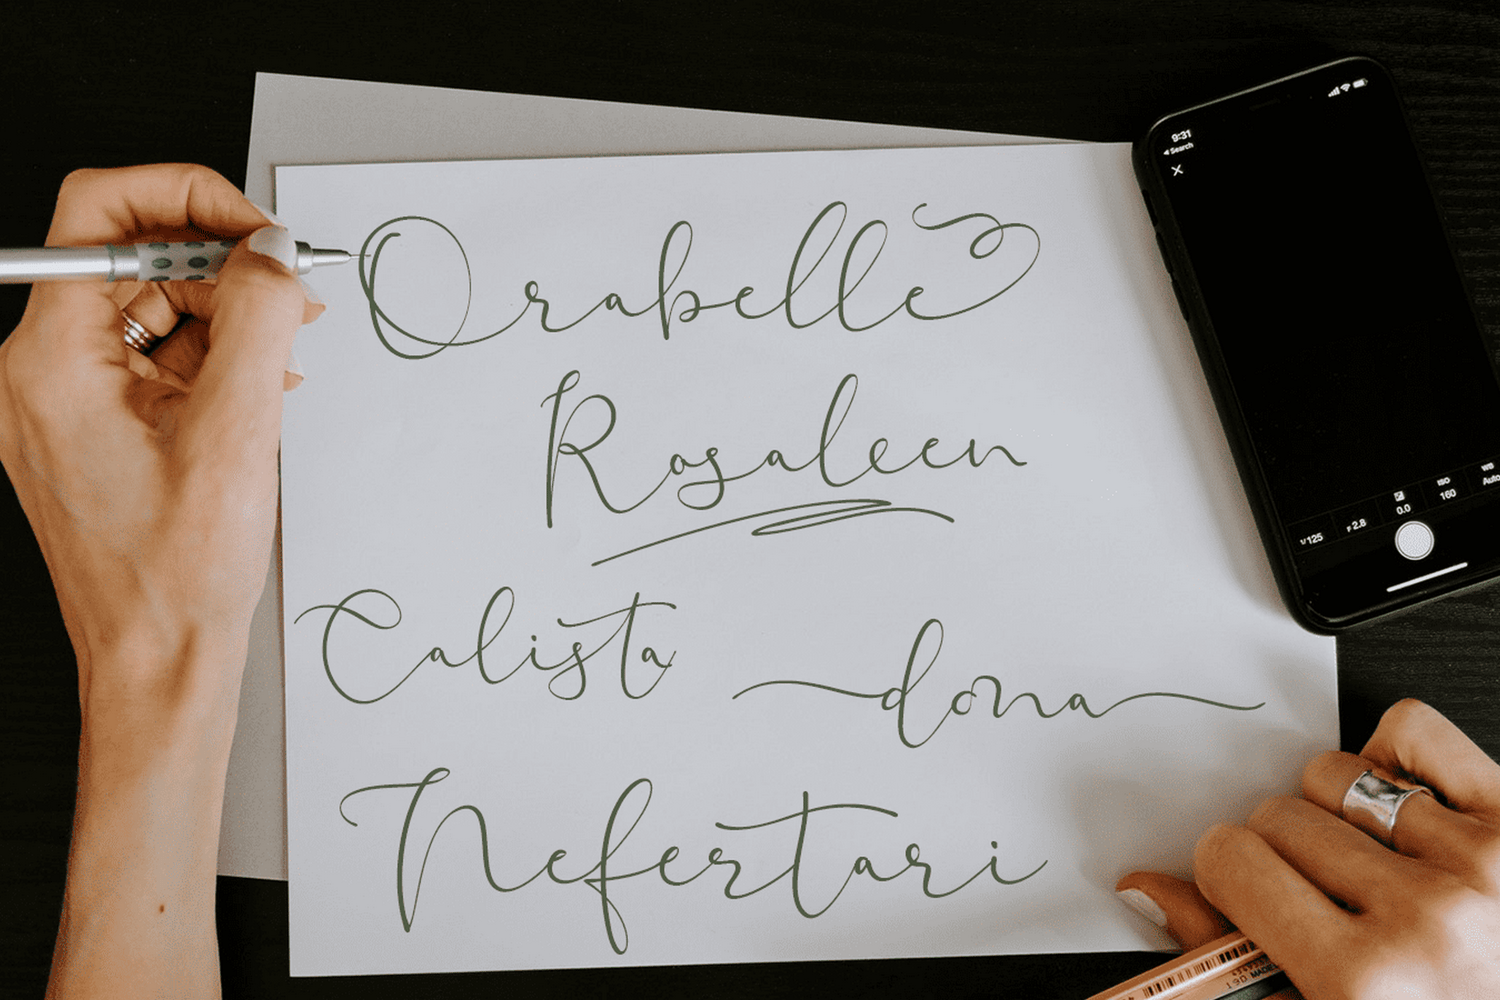 Orabelle
Rosaleen
Calista
dona
Nefertari
9:31
Search
1/125
F 2.8
0.0
ISO
160
WB
Auto
190 MADE